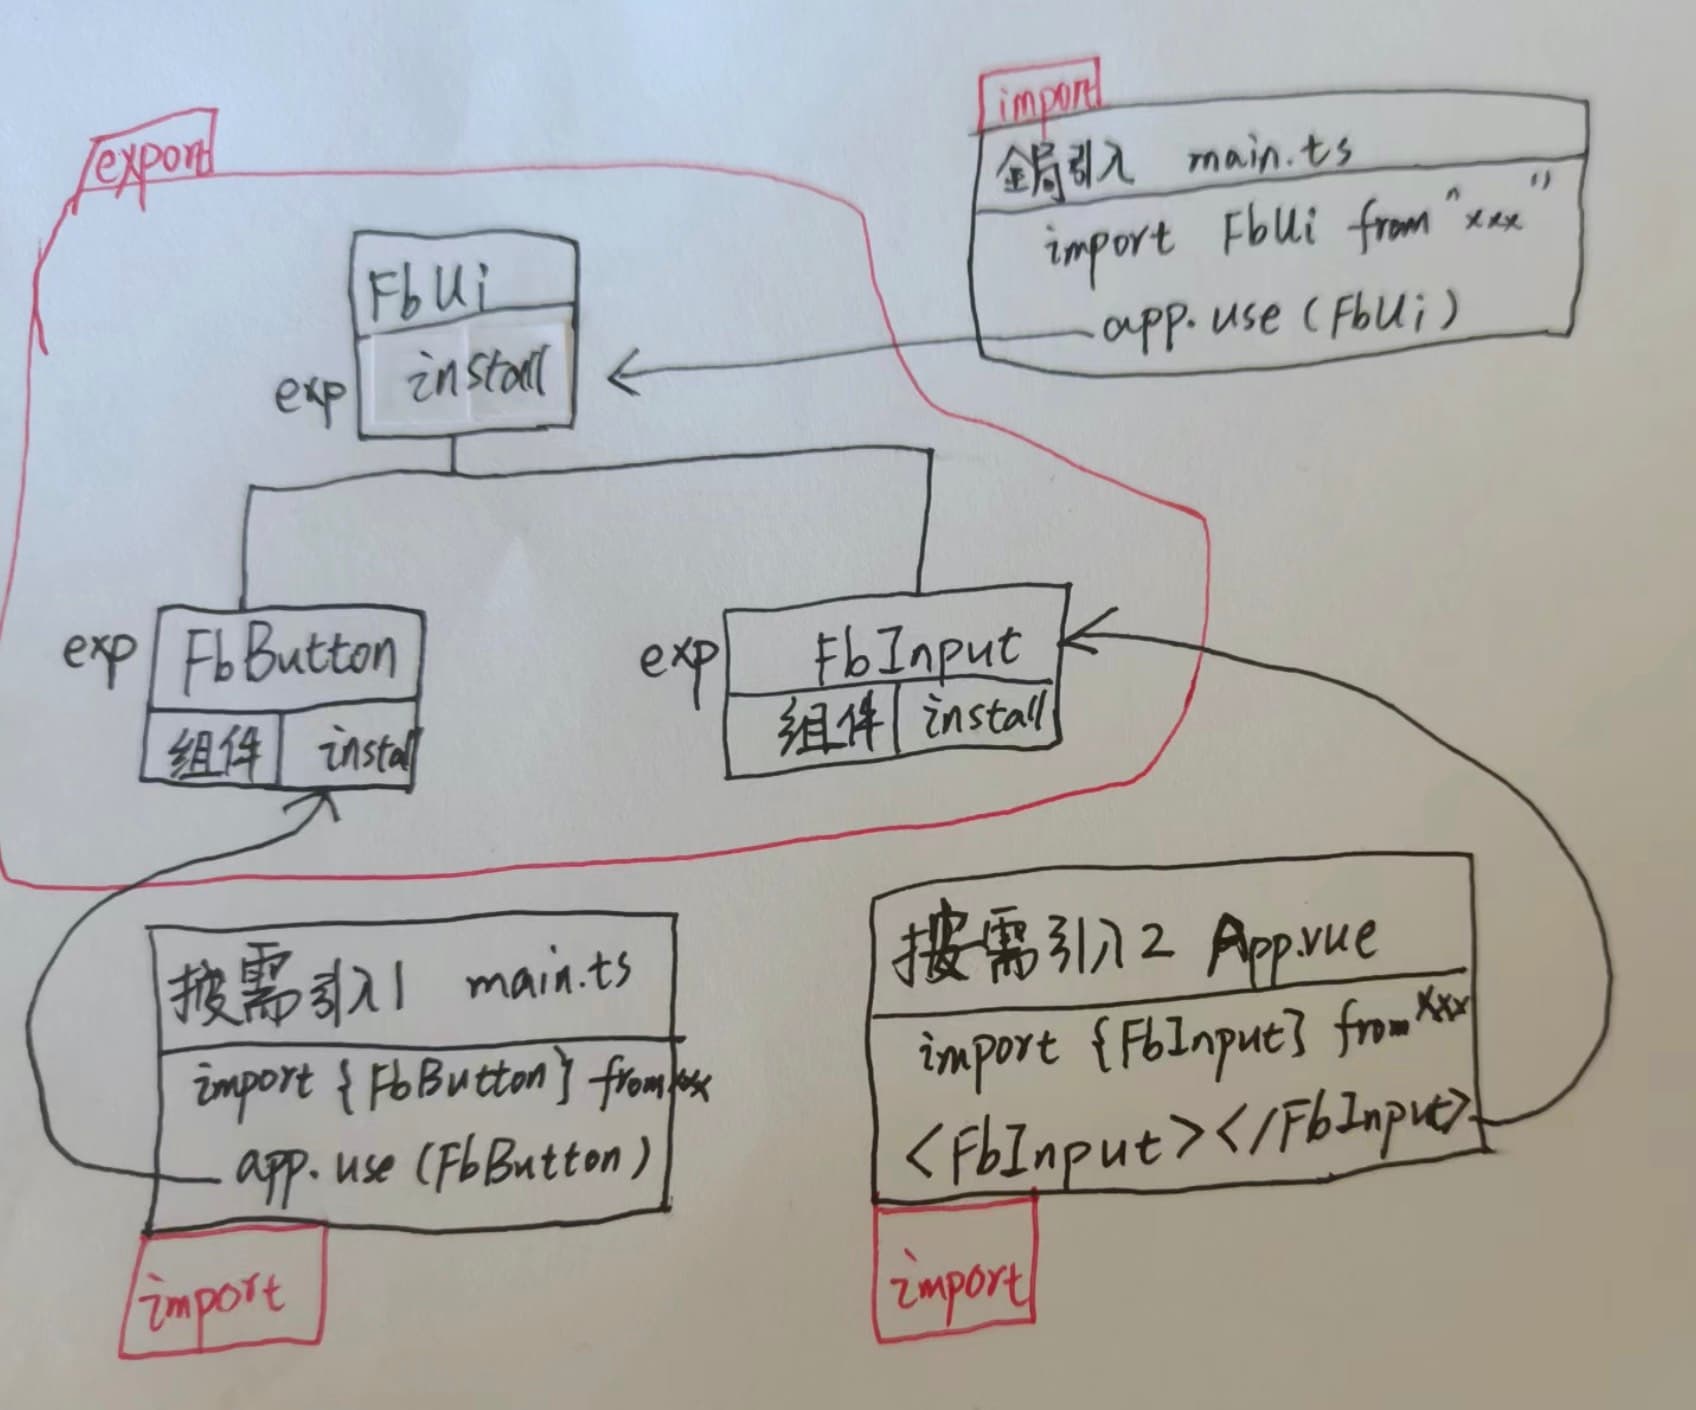 export
import
全局引入 main.ts
import FbUi from "xxx"
app.use(FbUi)
FbUi
exp install
exp FbButton
组件 install
exp FbInput
组件 install
按需引入1 main.ts
import {FbButton} from xxx
app.use(FbButton)
import
按需引入2 App.vue
import {FbInput} from xxx
<FbInput></FbInput>
import